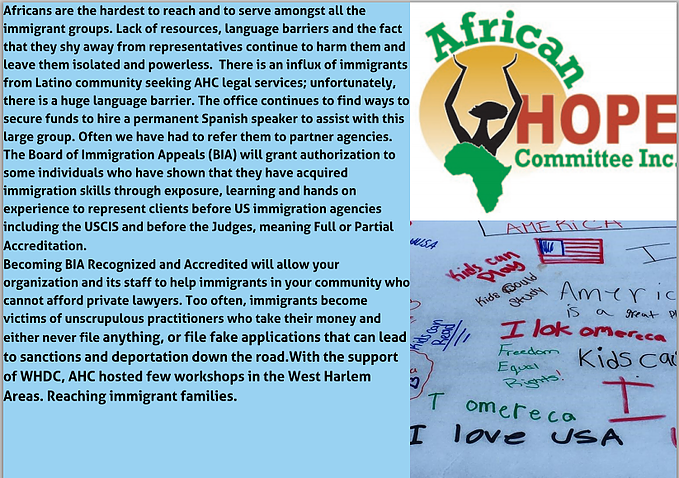 Africans are the hardest to reach and to serve amongst all the
immigrant groups. Lack of resources, language barriers and the fact
that they shy away from representatives continue to harm them and
leave them isolated and powerless.  There is an influx of immigrants
from Latino community seeking AHC legal services; unfortunately,
there is a huge language barrier. The office continues to find ways to
secure funds to hire a permanent Spanish speaker to assist with this
large group. Often we have had to refer them to partner agencies.
The Board of Immigration Appeals (BIA) will grant authorization to
some individuals who have shown that they have acquired
immigration skills through exposure, learning and hands on
experience to represent clients before US immigration agencies
including the USCIS and before the Judges, meaning Full or Partial
Accreditation.
Becoming BIA Recognized and Accredited will allow your
organization and its staff to help immigrants in your community who
cannot afford private lawyers. Too often, immigrants become
victims of unscrupulous practitioners who take their money and
either never file anything, or file fake applications that can lead
to sanctions and deportation down the road.With the support
of WHDC, AHC hosted few workshops in the West Harlem
Areas. Reaching immigrant families.
African
HOPE
Committee Inc.
AMERICA
USA
I
Kids can
Play
Kids could
study
Americ
is a great
Kids can
Read
I lok omereca
Freedom
Equal
Rights!
Kids ca
I
T omereca
I love USA